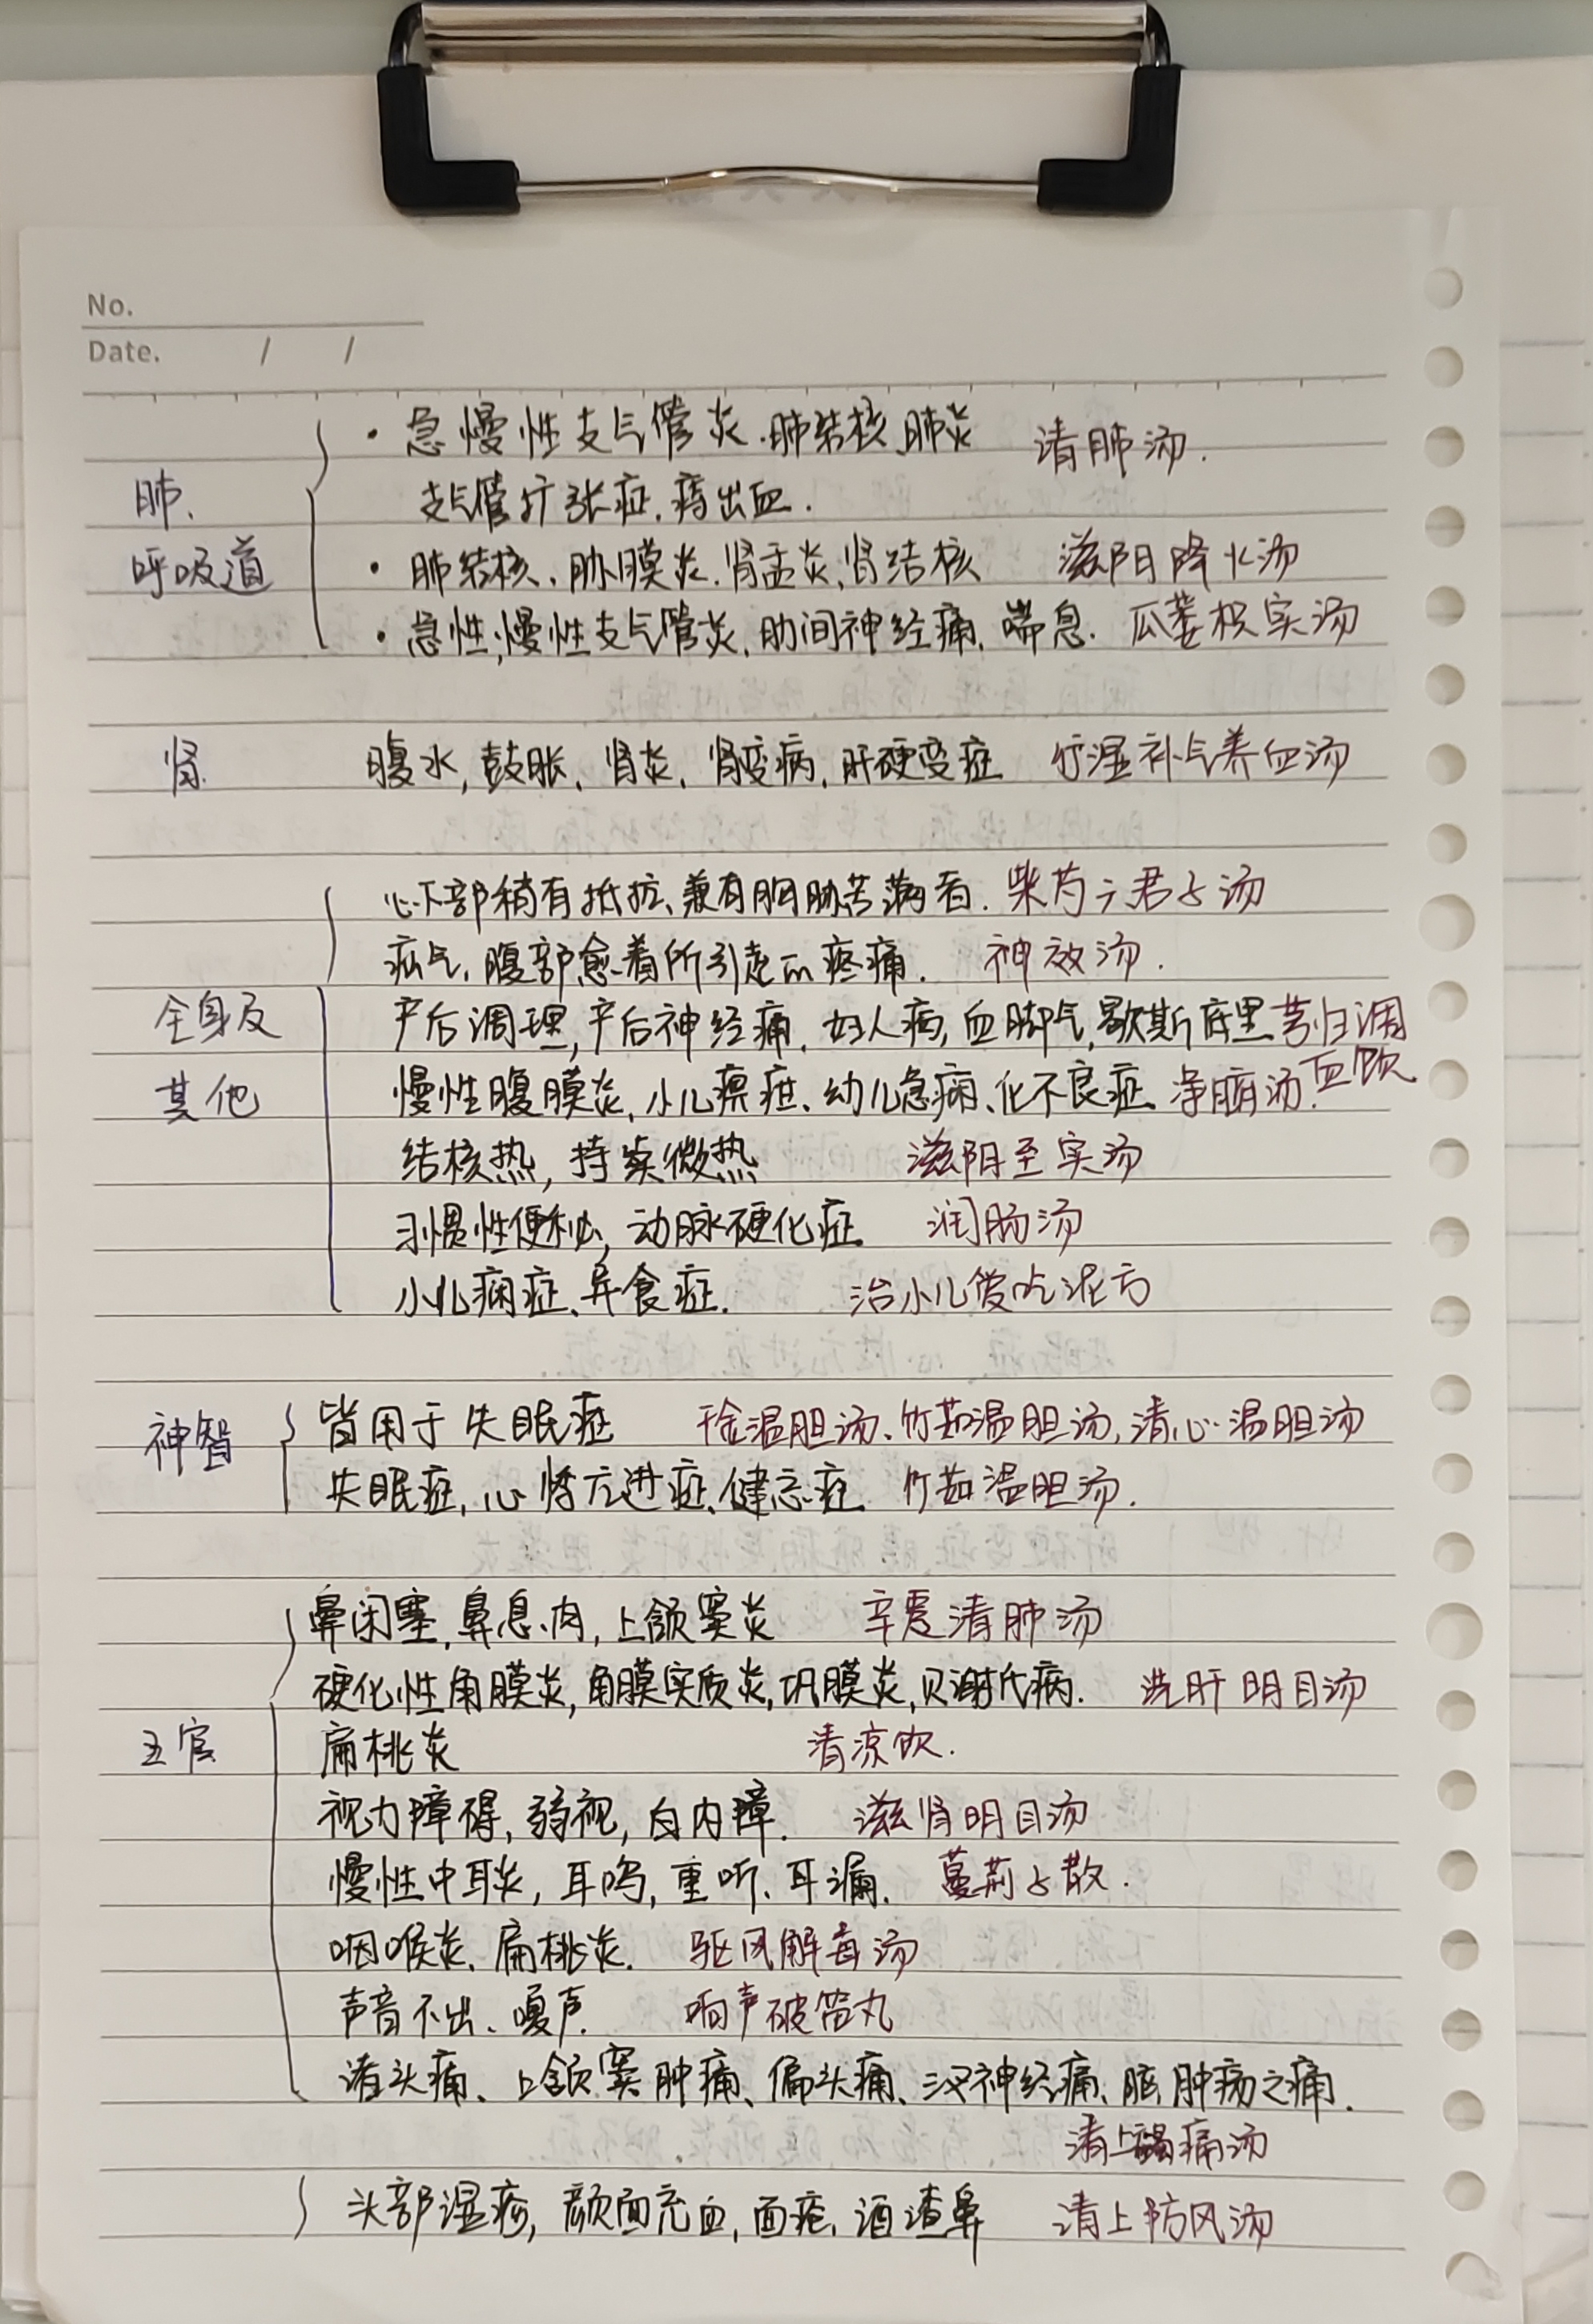 No.
Date. / /
·急慢性支气管炎.肺结核、肺炎 清肺汤.
肺、 支气管扩张症.痔出血.
呼吸道 ·肺结核、肋膜炎.肾盂炎、肾结核 滋阴降火汤
·急性,慢性支气管炎,肋间神经痛、喘息. 瓜蒌枳实汤
肾 腹水,鼓胀、肾炎、肾变病、肝硬变症 行湿补气养血汤
心下部稍有抵抗、兼有胸胁苦满者. 柴芍六君子汤
疝气、腹部愈着所引起的疼痛. 神效汤.
全身及 产后调理,产后神经痛、妇人病,血脚气,歇斯底里 芎归调
血饮
其他 慢性腹膜炎,小儿瘰疽、幼儿急痫、化不良症 净腑汤.
结核热,持续微热 滋阴至宝汤
习惯性便秘,动脉硬化症 润肠汤
小儿痫症、异食症. 治小儿爱吃泥方
神智 皆用于失眠症 千金温胆汤、竹茹温胆汤,清心温胆汤
失眠症,心悸亢进症、健忘症 竹茹温胆汤.
鼻闭塞,鼻息肉,上颌窦炎 辛夷清肺汤
硬化性角膜炎,角膜实质炎,巩膜炎,贝谢氏病. 洗肝明目汤
五官 扁桃炎 清凉饮.
视力障碍,弱视,白内障. 滋肾明目汤
慢性中耳炎,耳鸣,重听、耳漏. 蔓荆子散.
咽喉炎、扁桃炎. 驱风解毒汤
声音不出、嗄声. 响声破笛丸
诸头痛、上颌窦肿痛、偏头痛、三叉神经痛、脑肿疡之痛.
清上蠲痛汤
头部湿疹,颜面充血,面疱,酒渣鼻 清上防风汤